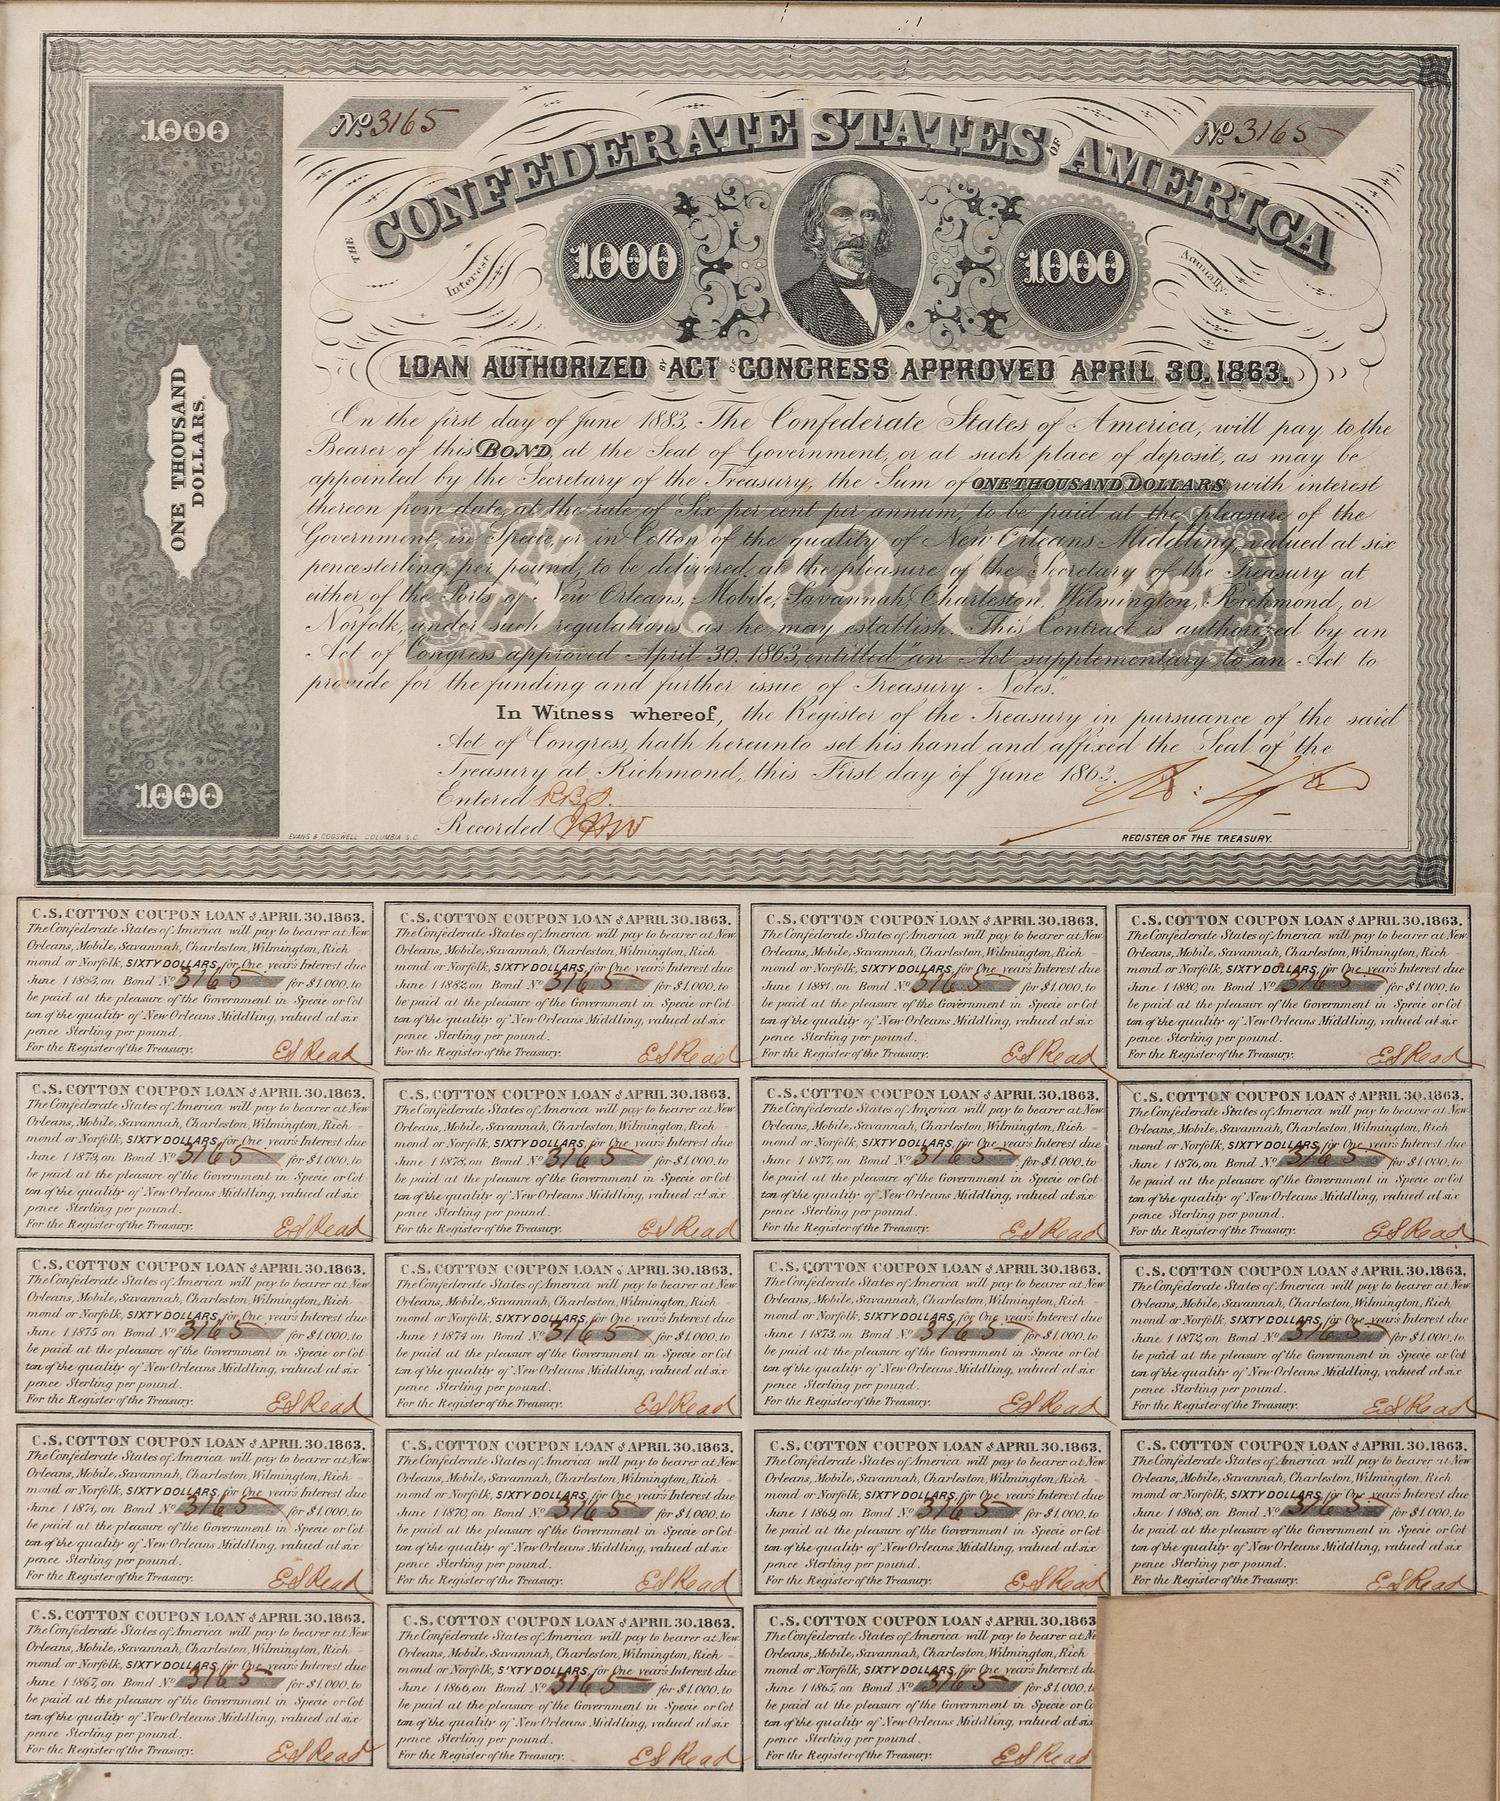 1000
ONE THOUSAND
DOLLARS.
1000
No 3165
No 3165
THE CONFEDERATE STATES OF AMERICA
Interest
Annually.
1000
1000
LOAN AUTHORIZED BY ACT OF CONGRESS APPROVED APRIL 30.1863.
On the first day of June 1883, The Confederate States of America, will pay to the
Bearer of this BOND, at the Seat of Government, or at such place of deposit, as may be
appointed by the Secretary of the Treasury, the Sum of ONE THOUSAND DOLLARS with interest
thereon from date, at the rate of Six per cent per annum, to be paid at the pleasure of the
Government, in Specie, or in Cotton of the quality of New Orleans Middling, valued at six
pence sterling per pound, to be delivered, at the pleasure of the Secretary of the Treasury at
either of the Ports of New Orleans, Mobile, Savannah, Charleston, Wilmington, Richmond, or
Norfolk, under such regulations as he may establish. This Contract is authorized by an
Act of Congress approved April 30. 1863, entitled "an Act supplementary to an Act to
provide for the funding and further issue of Treasury Notes."
$1000
In Witness whereof, the Register of the Treasury in pursuance of the said
Act of Congress, hath hereunto set his hand and affixed the Seal of the
Treasury at Richmond, this First day of June 1863.
Entered
Recorded
EVANS & COGSWELL COLUMBIA S.C.
REGISTER OF THE TREASURY.
C.S. COTTON COUPON LOAN of APRIL 30.1863.
The Confederate States of America will pay to bearer at New
Orleans, Mobile, Savannah, Charleston, Wilmington, Rich
mond or Norfolk, SIXTY DOLLARS, for One year's Interest due
June 1 1883, on Bond No 3165 for $1,000, to
be paid at the pleasure of the Government in Specie or Cot
ton of the quality of New Orleans Middling, valued at six
pence Sterling per pound.
For the Register of the Treasury. ES Read
C.S. COTTON COUPON LOAN of APRIL 30.1863.
The Confederate States of America will pay to bearer at New
Orleans, Mobile, Savannah, Charleston, Wilmington, Rich
mond or Norfolk, SIXTY DOLLARS, for One year's Interest due
June 1 1882, on Bond No 3165 for $1,000, to
be paid at the pleasure of the Government in Specie or Cot
ton of the quality of New Orleans Middling, valued at six
pence Sterling per pound.
For the Register of the Treasury. ES Read
C.S. COTTON COUPON LOAN of APRIL 30.1863.
The Confederate States of America will pay to bearer at New
Orleans, Mobile, Savannah, Charleston, Wilmington, Rich
mond or Norfolk, SIXTY DOLLARS, for One year's Interest due
June 1 1881, on Bond No 3165 for $1,000, to
be paid at the pleasure of the Government in Specie or Cot
ton of the quality of New Orleans Middling, valued at six
pence Sterling per pound.
For the Register of the Treasury. ES Read
C.S. COTTON COUPON LOAN of APRIL 30.1863.
The Confederate States of America will pay to bearer at New
Orleans, Mobile, Savannah, Charleston, Wilmington, Rich
mond or Norfolk, SIXTY DOLLARS, for One year's Interest due
June 1 1880, on Bond No 3165 for $1,000, to
be paid at the pleasure of the Government in Specie or Cot
ton of the quality of New Orleans Middling, valued at six
pence Sterling per pound.
For the Register of the Treasury. ES Read
C.S. COTTON COUPON LOAN of APRIL 30.1863.
The Confederate States of America will pay to bearer at New
Orleans, Mobile, Savannah, Charleston, Wilmington, Rich
mond or Norfolk, SIXTY DOLLARS, for One year's Interest due
June 1 1879, on Bond No 3165 for $1,000, to
be paid at the pleasure of the Government in Specie or Cot
ton of the quality of New Orleans Middling, valued at six
pence Sterling per pound.
For the Register of the Treasury. ES Read
C.S. COTTON COUPON LOAN of APRIL 30.1863.
The Confederate States of America will pay to bearer at New
Orleans, Mobile, Savannah, Charleston, Wilmington, Rich
mond or Norfolk, SIXTY DOLLARS, for One year's Interest due
June 1 1878, on Bond No 3165 for $1,000, to
be paid at the pleasure of the Government in Specie or Cot
ton of the quality of New Orleans Middling, valued at six
pence Sterling per pound.
For the Register of the Treasury. ES Read
C.S. COTTON COUPON LOAN of APRIL 30.1863.
The Confederate States of America will pay to bearer at New
Orleans, Mobile, Savannah, Charleston, Wilmington, Rich
mond or Norfolk, SIXTY DOLLARS, for One year's Interest due
June 1 1877, on Bond No 3165 for $1,000, to
be paid at the pleasure of the Government in Specie or Cot
ton of the quality of New Orleans Middling, valued at six
pence Sterling per pound.
For the Register of the Treasury. ES Read
C.S. COTTON COUPON LOAN of APRIL 30.1863.
The Confederate States of America will pay to bearer at New
Orleans, Mobile, Savannah, Charleston, Wilmington, Rich
mond or Norfolk, SIXTY DOLLARS, for One year's Interest due
June 1 1876, on Bond No 3165 for $1,000, to
be paid at the pleasure of the Government in Specie or Cot
ton of the quality of New Orleans Middling, valued at six
pence Sterling per pound.
For the Register of the Treasury. ES Read
C.S. COTTON COUPON LOAN of APRIL 30.1863.
The Confederate States of America will pay to bearer at New
Orleans, Mobile, Savannah, Charleston, Wilmington, Rich
mond or Norfolk, SIXTY DOLLARS, for One year's Interest due
June 1 1875 on Bond No 3165 for $1,000, to
be paid at the pleasure of the Government in Specie or Cot
ton of the quality of New Orleans Middling, valued at six
pence Sterling per pound.
For the Register of the Treasury. ES Read
C.S. COTTON COUPON LOAN of APRIL 30.1863.
The Confederate States of America will pay to bearer at New
Orleans, Mobile, Savannah, Charleston, Wilmington, Rich
mond or Norfolk, SIXTY DOLLARS, for One year's Interest due
June 1 1874 on Bond No 3165 for $1,000, to
be paid at the pleasure of the Government in Specie or Cot
ton of the quality of New Orleans Middling, valued at six
pence Sterling per pound.
For the Register of the Treasury. ES Read
C.S. COTTON COUPON LOAN of APRIL 30.1863.
The Confederate States of America will pay to bearer at New
Orleans, Mobile, Savannah, Charleston, Wilmington, Rich
mond or Norfolk, SIXTY DOLLARS, for One year's Interest due
June 1 1873, on Bond No 3165 for $1,000, to
be paid at the pleasure of the Government in Specie or Cot
ton of the quality of New Orleans Middling, valued at six
pence Sterling per pound.
For the Register of the Treasury. ES Read
C.S. COTTON COUPON LOAN of APRIL 30.1863.
The Confederate States of America will pay to bearer at New
Orleans, Mobile, Savannah, Charleston, Wilmington, Rich
mond or Norfolk, SIXTY DOLLARS, for One year's Interest due
June 1 1872, on Bond No 3165 for $1,000, to
be paid at the pleasure of the Government in Specie or Cot
ton of the quality of New Orleans Middling, valued at six
pence Sterling per pound.
For the Register of the Treasury. ES Read
C.S. COTTON COUPON LOAN of APRIL 30.1863.
The Confederate States of America will pay to bearer at New
Orleans, Mobile, Savannah, Charleston, Wilmington, Rich
mond or Norfolk, SIXTY DOLLARS, for One year's Interest due
June 1 1871, on Bond No 3165 for $1,000, to
be paid at the pleasure of the Government in Specie or Cot
ton of the quality of New Orleans Middling, valued at six
pence Sterling per pound.
For the Register of the Treasury. ES Read
C.S. COTTON COUPON LOAN of APRIL 30.1863.
The Confederate States of America will pay to bearer at New
Orleans, Mobile, Savannah, Charleston, Wilmington, Rich
mond or Norfolk, SIXTY DOLLARS, for One year's Interest due
June 1 1870, on Bond No 3165 for $1,000, to
be paid at the pleasure of the Government in Specie or Cot
ton of the quality of New Orleans Middling, valued at six
pence Sterling per pound.
For the Register of the Treasury. ES Read
C.S. COTTON COUPON LOAN of APRIL 30.1863.
The Confederate States of America will pay to bearer at New
Orleans, Mobile, Savannah, Charleston, Wilmington, Rich
mond or Norfolk, SIXTY DOLLARS, for One year's Interest due
June 1 1869, on Bond No 3165 for $1,000, to
be paid at the pleasure of the Government in Specie or Cot
ton of the quality of New Orleans Middling, valued at six
pence Sterling per pound.
For the Register of the Treasury. ES Read
C.S. COTTON COUPON LOAN of APRIL 30.1863.
The Confederate States of America will pay to bearer at New
Orleans, Mobile, Savannah, Charleston, Wilmington, Rich
mond or Norfolk, SIXTY DOLLARS, for One year's Interest due
June 1 1868, on Bond No 3165 for $1,000, to
be paid at the pleasure of the Government in Specie or Cot
ton of the quality of New Orleans Middling, valued at six
pence Sterling per pound.
For the Register of the Treasury. ES Read
C.S. COTTON COUPON LOAN of APRIL 30.1863.
The Confederate States of America will pay to bearer at New
Orleans, Mobile, Savannah, Charleston, Wilmington, Rich
mond or Norfolk, SIXTY DOLLARS, for One year's Interest due
June 1 1867, on Bond No 3165 for $1,000, to
be paid at the pleasure of the Government in Specie or Cot
ton of the quality of New Orleans Middling, valued at six
pence Sterling per pound.
For the Register of the Treasury. ES Read
C.S. COTTON COUPON LOAN of APRIL 30.1863.
The Confederate States of America will pay to bearer at New
Orleans, Mobile, Savannah, Charleston, Wilmington, Rich
mond or Norfolk, SIXTY DOLLARS, for One year's Interest due
June 1 1866, on Bond No 3165 for $1,000, to
be paid at the pleasure of the Government in Specie or Cot
ton of the quality of New Orleans Middling, valued at six
pence Sterling per pound.
For the Register of the Treasury. ES Read
C.S. COTTON COUPON LOAN of APRIL 30.1863
The Confederate States of America will pay to bearer at Ne
Orleans, Mobile, Savannah, Charleston, Wilmington, Rich
mond or Norfolk, SIXTY DOLLARS, for One year's Interest du
June 1 1865, on Bond No 3165 for $1,000,
be paid at the pleasure of the Government in Specie or Co
ton of the quality of New Orleans Middling, valued at six
pence Sterling per pound.
For the Register of the Treasury. ES Read